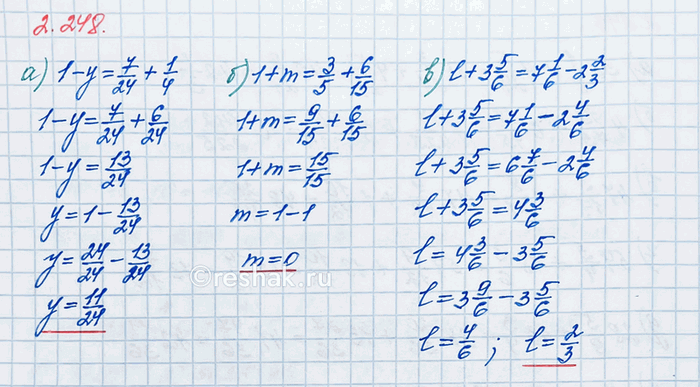 2.248.
а) 1-y=7/24+1/4
1-y=7/24+6/24
1-y=13/24
y=1-13/24
y=24/24-13/24
y=11/24
б) 1+m=3/5+6/15
1+m=9/15+6/15
1+m=15/15
m=1-1
m=0
в) l+3 5/6=7 1/6-2 2/3
l+3 5/6=7 1/6-2 4/6
l+3 5/6=6 7/6-2 4/6
l+3 5/6=4 3/6
l=4 3/6-3 5/6
l=3 9/6-3 5/6
l=4/6; l=2/3
©reshak.ru